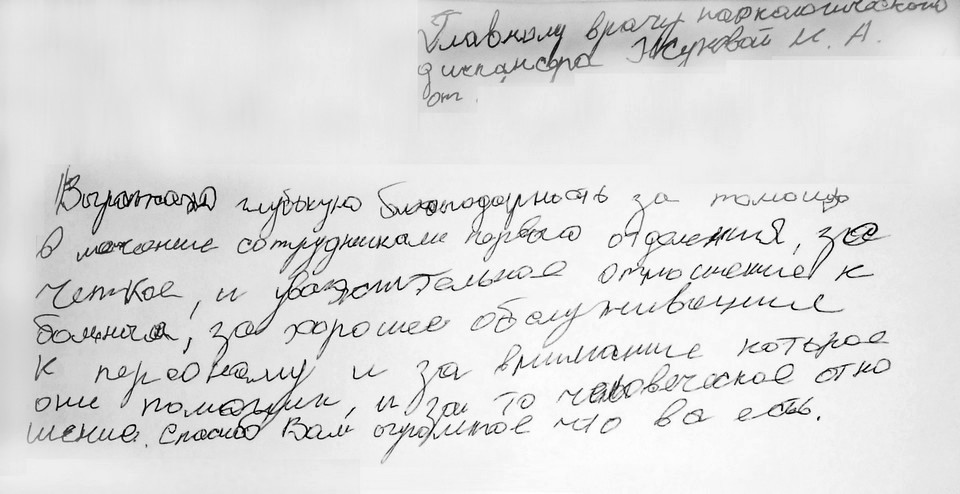 Главному врачу наркологического
диспансера Жуковай И. А.
от
Выражаю глубокую благодарность за помощь
в лечение сотрудникам первого отделения, за
четкое, и уважительное отношение к
больным, за хорошее обслуживание
к персоналу и за внимание которое
они помогли, и за то человеческое отно
шение. Спасибо Вам огромное что вы есть.